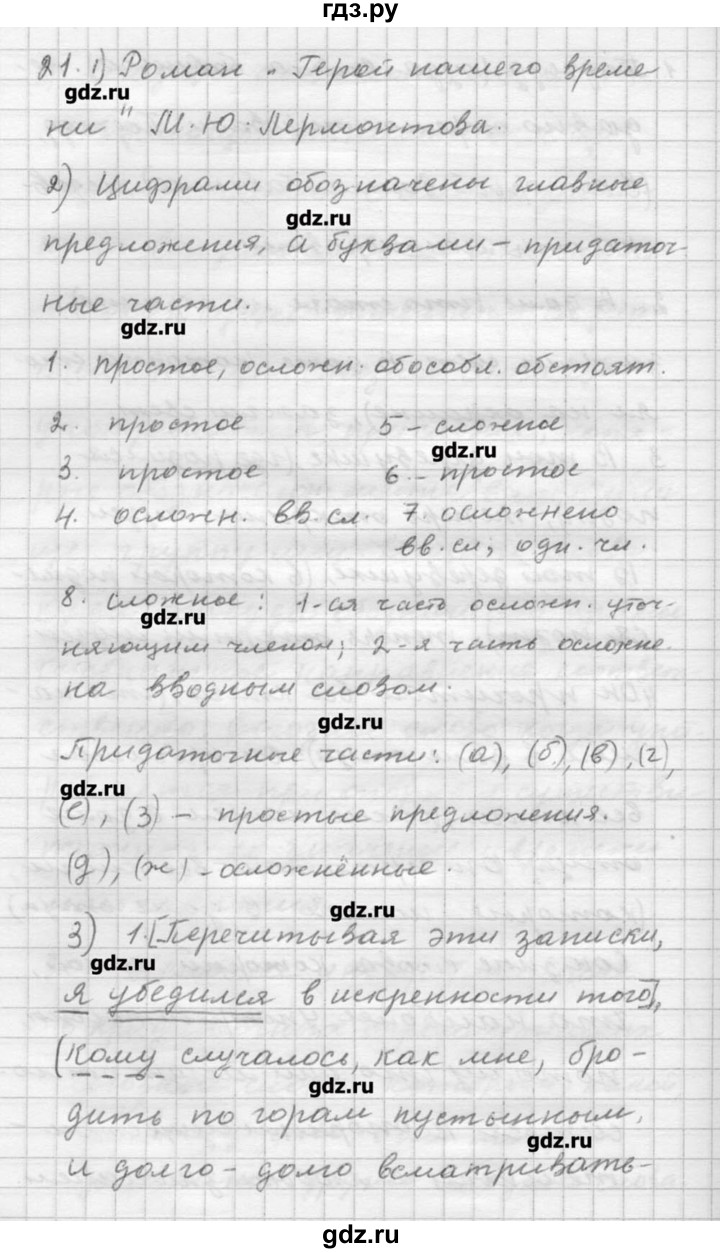 гдз.ру
21. 1) Роман „Герой нашего време
gdz.ru
ни" М.Ю.Лермонтова.
2) Цифрами обозначены главные
gdz.ru
предложения, а буквами – придаточ-
ные части.
gdz.ru
1. простое, осложн. обособл. обстоят.
2. простое 5 – сложное
gdz.ru
3. простое 6. – простое
4. осложн. вв. сл. 7. осложнено
вв. сл; одн. чл.
8. сложное: 1-ая часть осложн. уточ-
gdz.ru
няющим членом; 2-я часть осложне-
на вводным словом.
gdz.ru
Придаточные части: (а), (б), (в), (г),
gdz.ru
(е), (з) – простые предложения.
(д), (ж) – осложнённые.
gdz.ru
3) 1. [Перечитывая эти записки,
gdz.ru
я убедился в искренности того],
(кому случалось, как мне, бро-
gdz.ru
дить по горам пустынным,
gdz.ru
и долго-долго всматривать-
gdz.ru